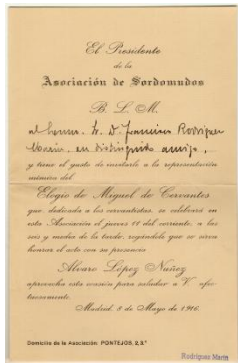 El Presidente
de la
Asociación de Sordomudos
B. L. M.
al Excmo. Sr. D. Francisco Rodríguez
Marín, su distinguido amigo,
y tiene el gusto de invitarle a la representación
mímica del
Elogio de Miguel de Cervantes
que, dedicada a los cervantistas, se celebrará en
esta Asociación el jueves 11 del corriente, a las
seis y media de la tarde, rogándole que se sirva
honrar el acto con su presencia
Álvaro López Núñez
aprovecha esta ocasión para saludar a V. afec-
tuosamente.
Madrid, 8 de Mayo de 1916.
Domicilio de la Asociación: PONTEJOS, 2, 3.º
Rodríguez Marín